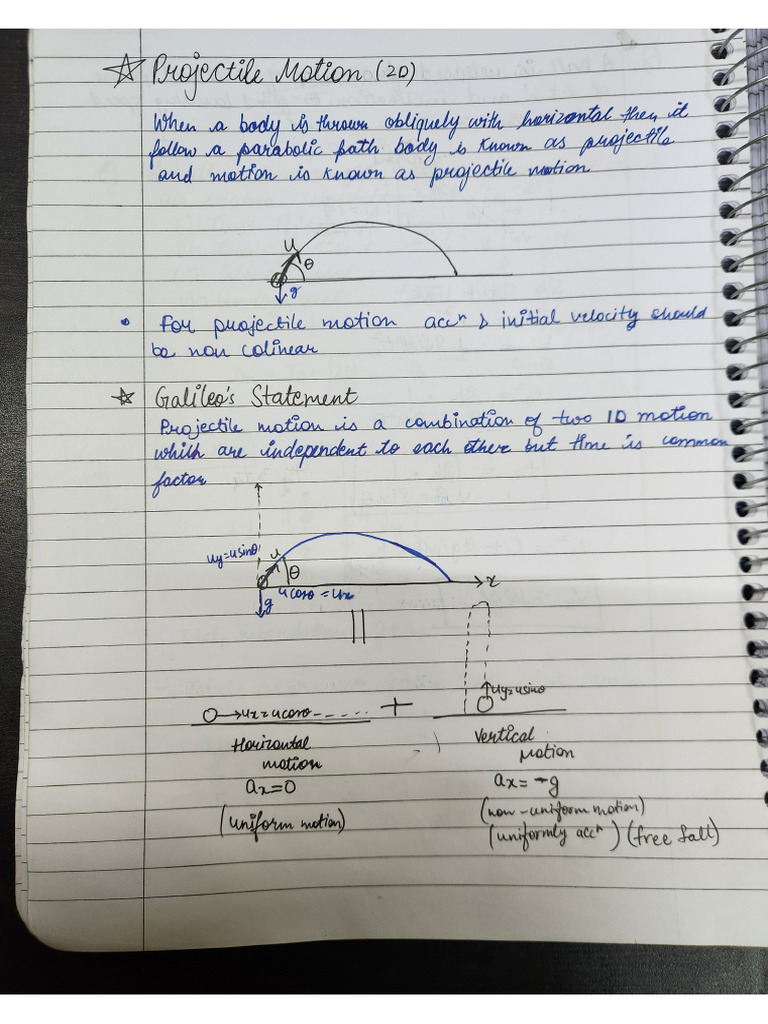 ☆ Projectile Motion (2D)
When a body is thrown obliquely with horizontal then it
follow a parabolic path body is known as projectile
and motion is known as projectile motion
u
θ
g
• For projectile motion accⁿ & initial velocity should
be non colinear
☆ Galileo's Statement
Projectile motion is a combination of two 1D motion
which are independent to each other but time is common
factor
uy=usinθ
u
θ
x
g
ucosθ = ux
||
uy=usinθ
→ux=ucosθ
+
Horizontal
motion
ax=0
(uniform motion)
Vertical
Motion
ax=-g
(non-uniform motion)
(uniformly accⁿ) (free fall)